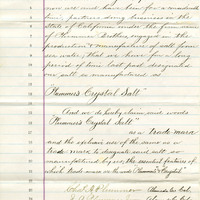 now are and have been for a number
time, partners doing business in the
State of California under the firm name
of Plummer Brothers, engaged in the
production & manufacture of salt from
sea water, that we have for a long
period of time last past designated
our salt as manufactured as
"Plummer's Crystal Salt"
And we do hereby claim said words
"Plummer's Crystal Salt"
as a trade mark
and the exclusive use of the same as a
trade mark to designate said salt as
manufactured by us, the essential features of
which trade mark are the words Plummer's Crystal.
Plummer Alameda Co. Cal.